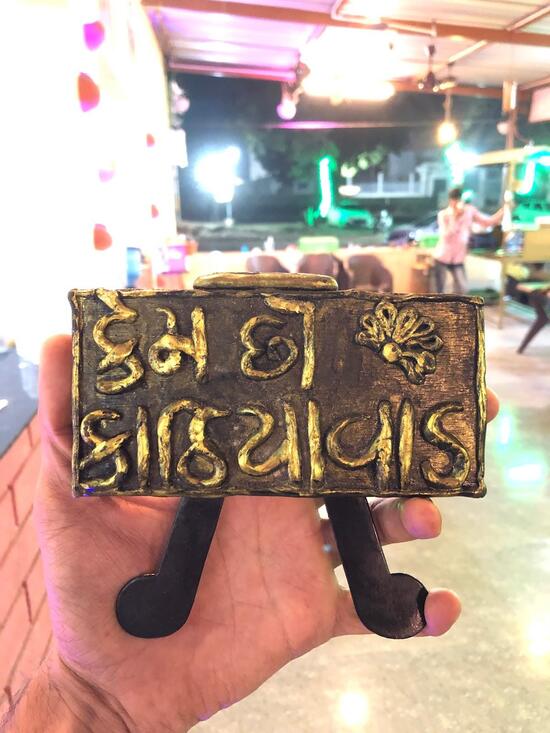 કેમ છો
કાઠિયાવાડ